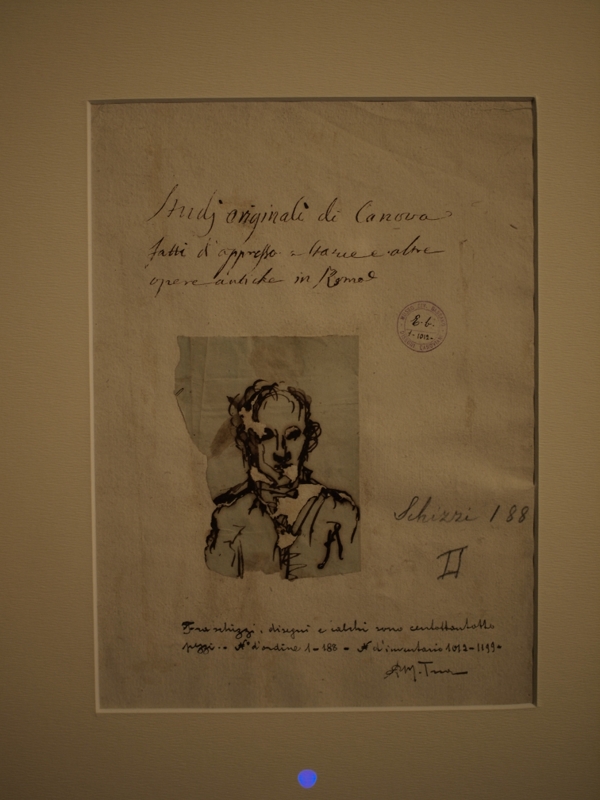 Studj originali di Canova
fatti d'appresso a Statue e altre
opere antiche in Roma
E. b.
1-1012-
Schizzi 188
II
Fra schizzi, disegni e calchi sono centottantotto
pezzi. - N° d'ordine 1-188 - N d'inventario 1012-1199-